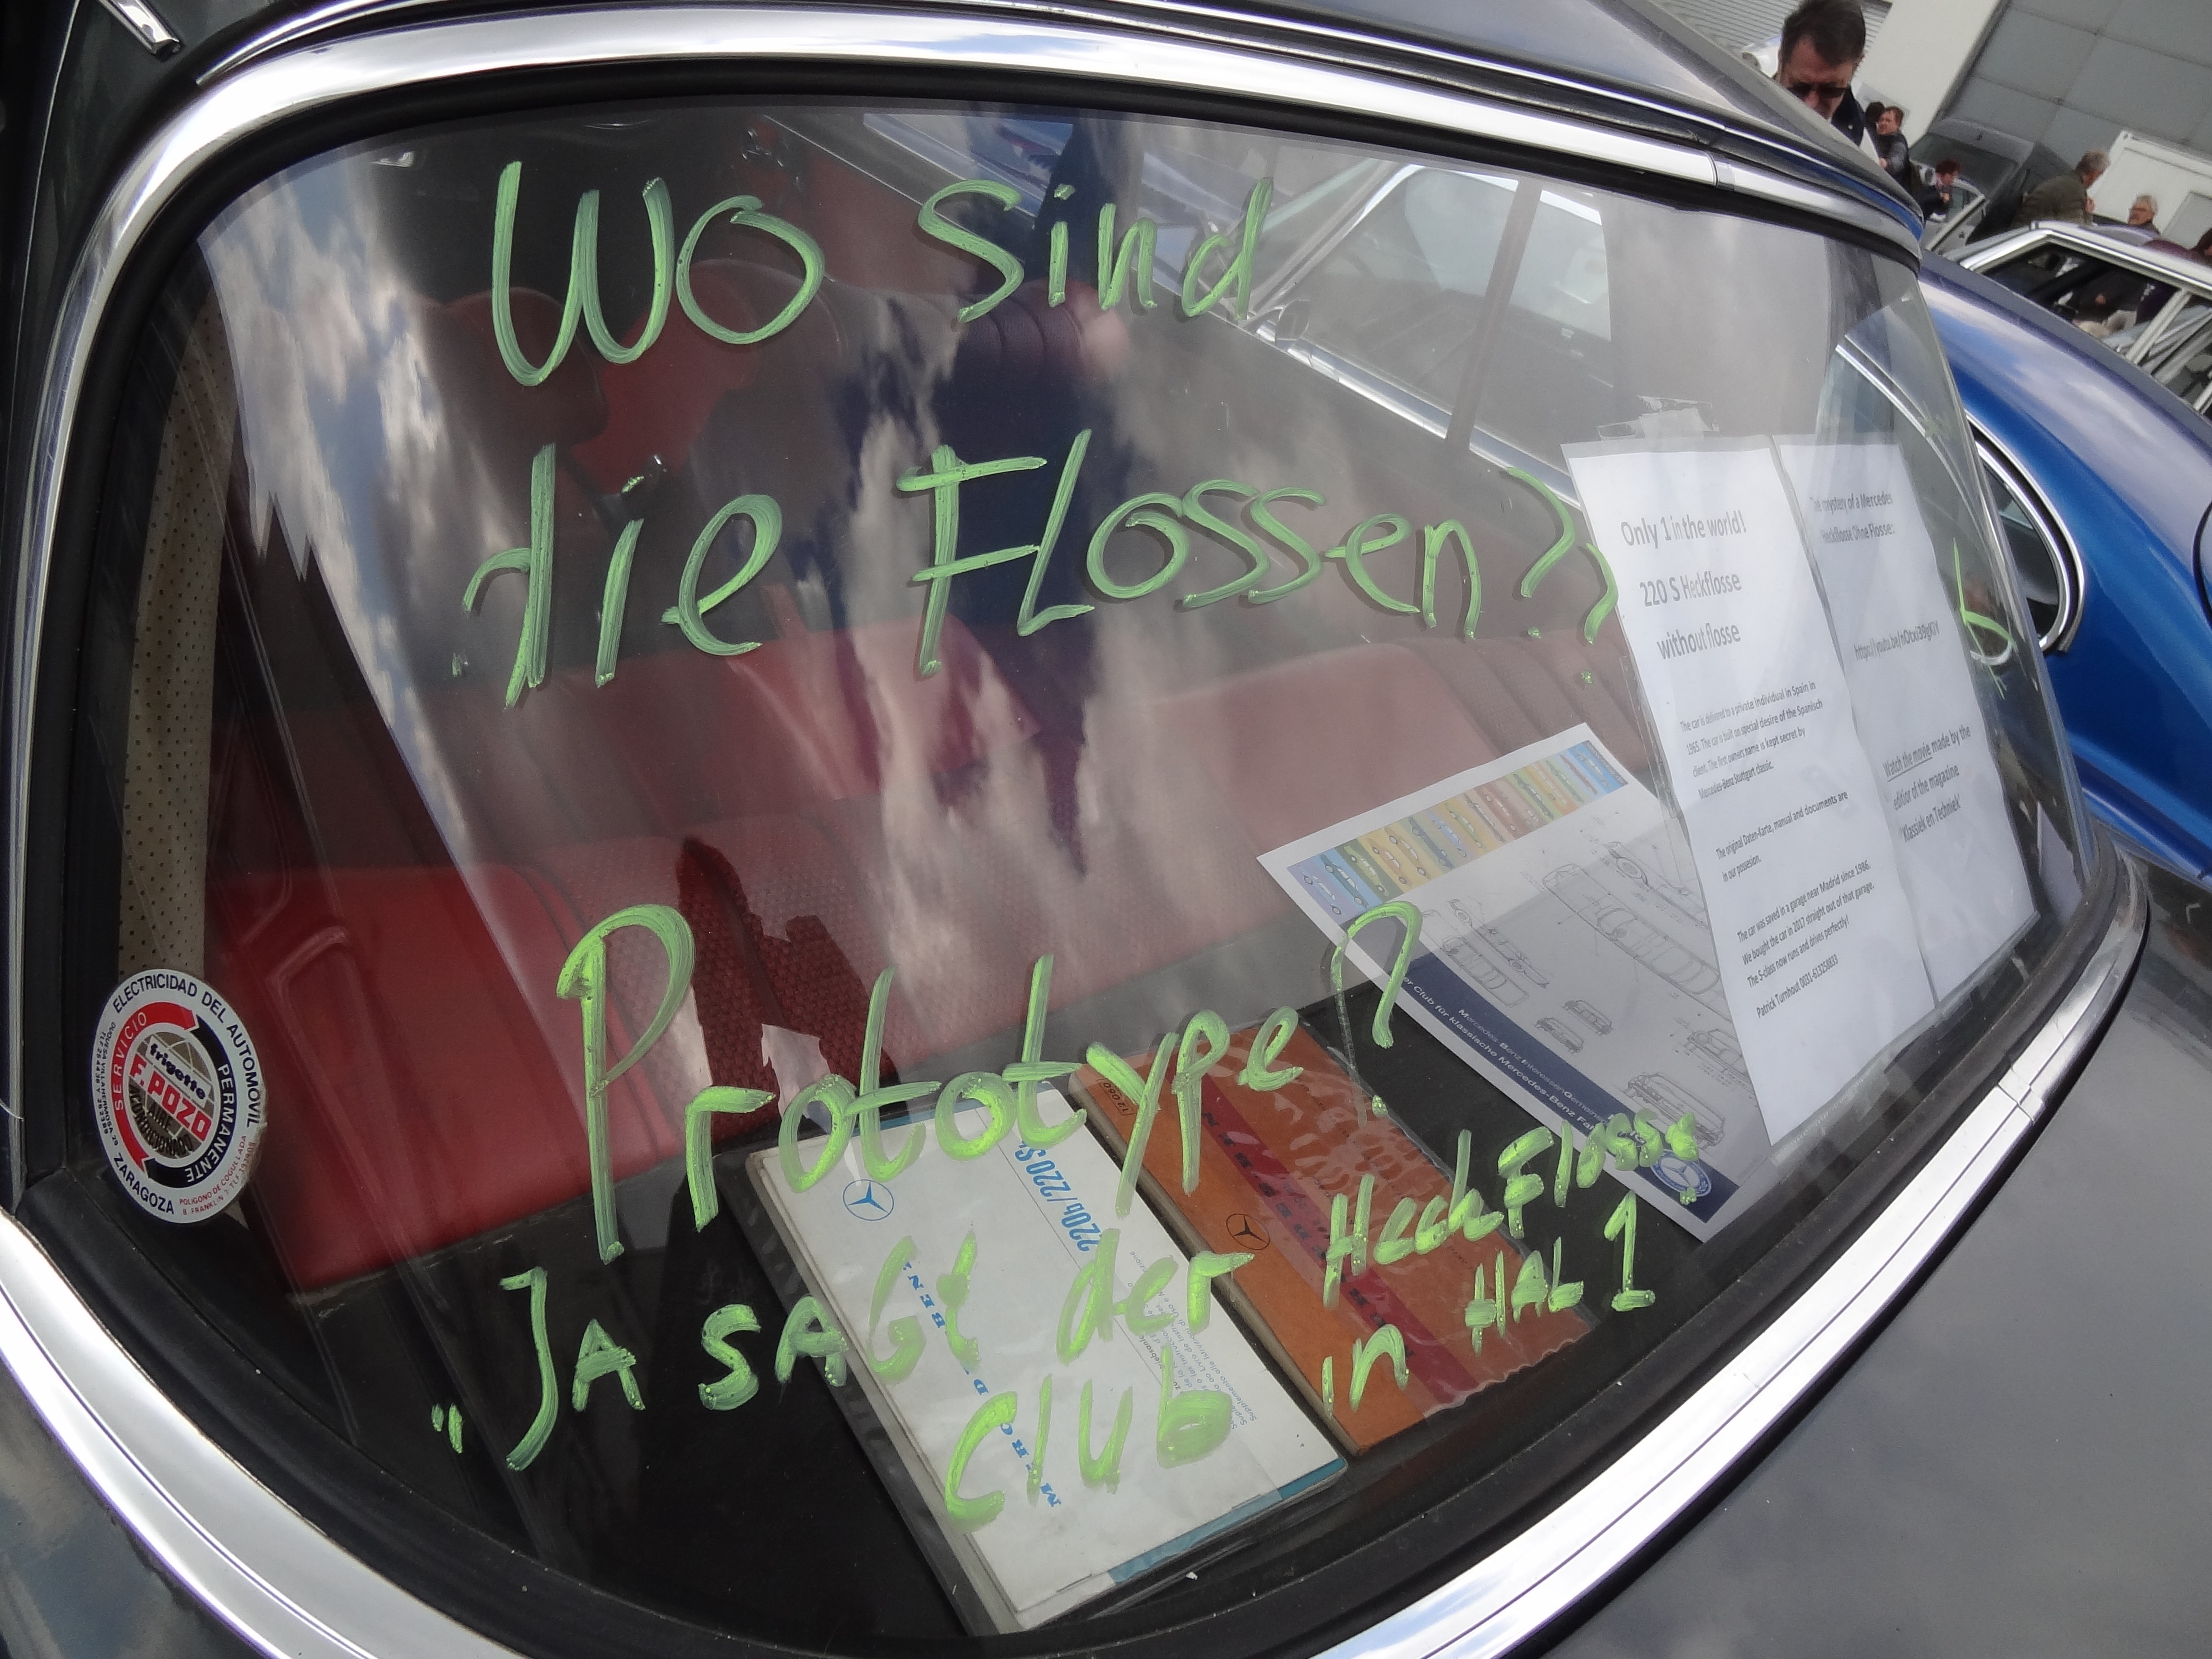 Wo sind
die Flossen??
Prototype?
„JA SAGt der HeckFlosse
Club in HAL 1
Only 1 in the world!
220 S Heckflosse
without flosse
The car is delivered to a private individual in Spain in
1965. The car is built on special desire of the Spanisch
client. The first owners name is kept secret by
Mercedes-Benz Stuttgart classic.
The original Daten-Karte, manual and documents are
in our possesion.
The car was saved in a garage near Madrid since 1986.
We bought the car in 2017 straight out of that garage.
The S-class now runs and drives perfectly!
Patrick Turnhout
The mystery of a Mercedes
Heckflosse Ohne Flosse:
https://youtu.be/
Watch the movie made by the
editor of the magazine
'Klassiek en Techniek'
Mercedes-Benz Interessen-Gemein
er Club für klassische Mercedes-Benz Fa
220b/220Sb
MERC D-BENZ
12060
ELECTRICIDAD DEL AUTOMOVIL
SERVICIO PERMANENTE
frigette
F. POZO
ZARAGOZA
POLIGONO DE COGULLADA